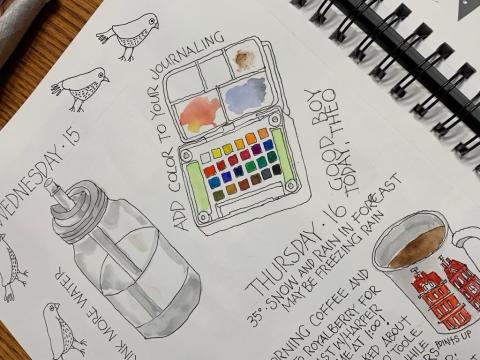 WEDNESDAY · 15
DRINK MORE WATER
ADD COLOR TO YOUR JOURNALING
GOOD BOY
TODAY, THEO
THURSDAY · 16
35° · SNOW AND RAIN IN FORECAST
MAY BE FREEZING RAIN
COFFEE AND
ROYALBERRY, FOR
AT 7:00!
ABOUT
TOOLE
POINTS UP